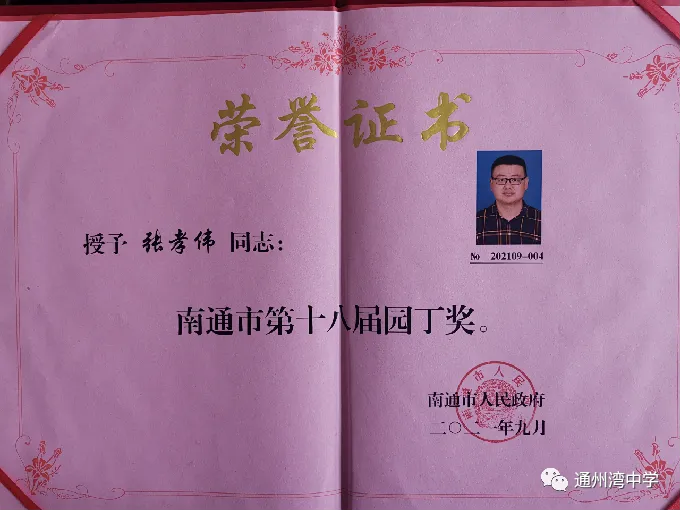 荣誉证书
授予 张孝伟 同志：
No 202109-004
南通市第十八届园丁奖。
南通市人民政府
二〇二一年九月
通州湾中学